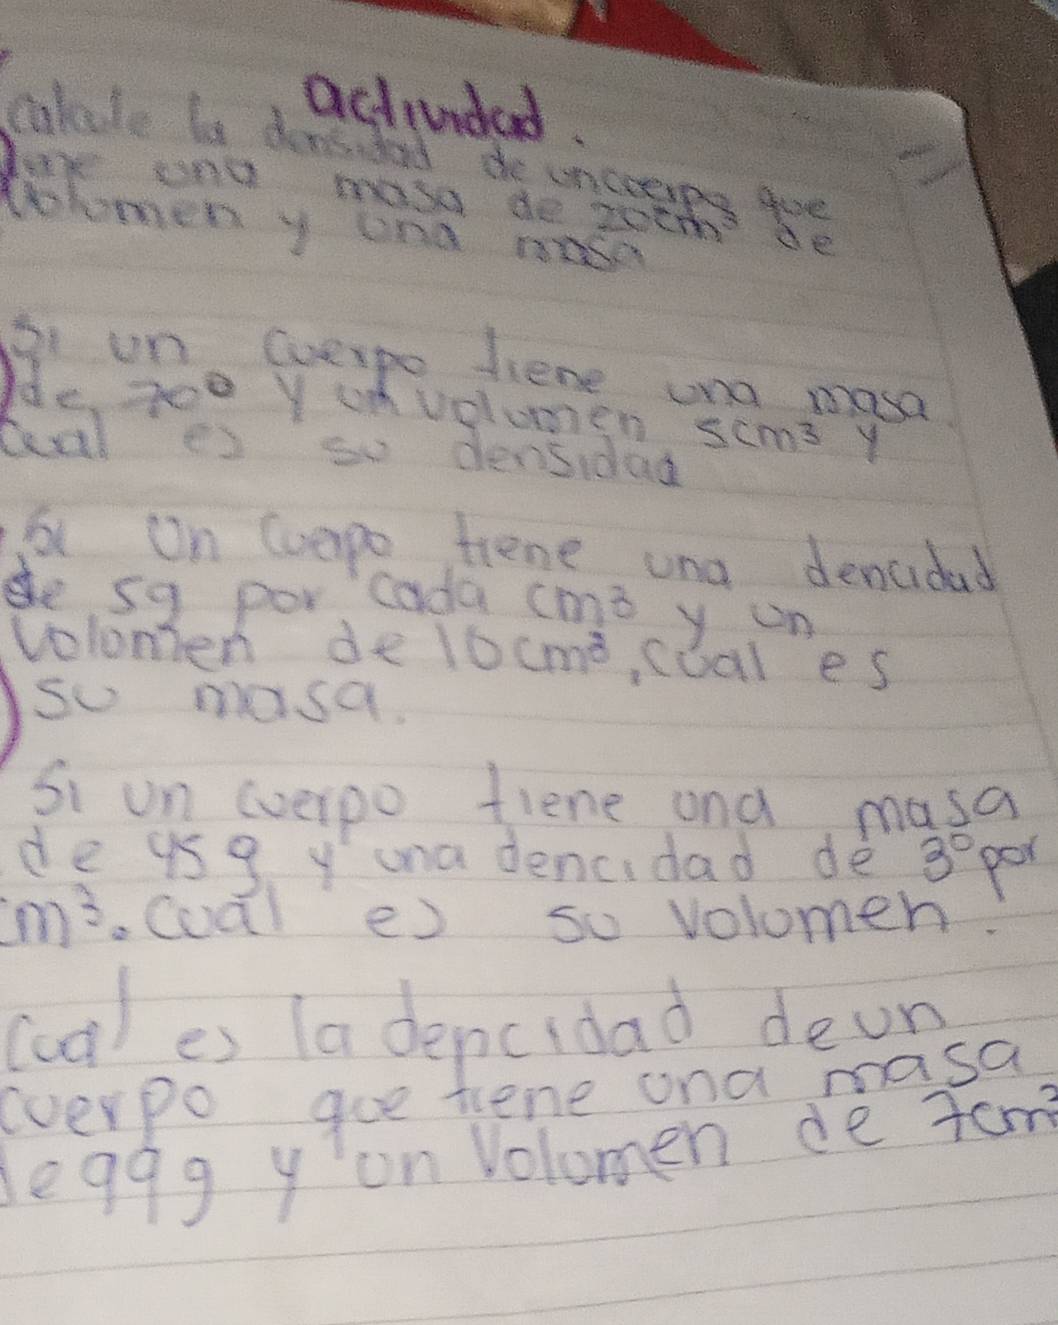 actividad.
calcule la densidad de uncuerpo que
tiene una masa de 20cm³ de
volomen y una masa
Si un cuerpo tiene una masa
de 70° y un volumen 5cm³ y
cual es su densidad
Si un cuerpo tiene una dencidad
de 5g por cada cm³ y un
volomen de 10cm³, cual es
su masa.
Si un cuerpo tiene una masa
de 45g y una dencidad de 3° por
cm³. cual es su volomen.
Cual es la dencidad deun
cuerpo que tiene una masa
de 99g y un volomen de 7cm³